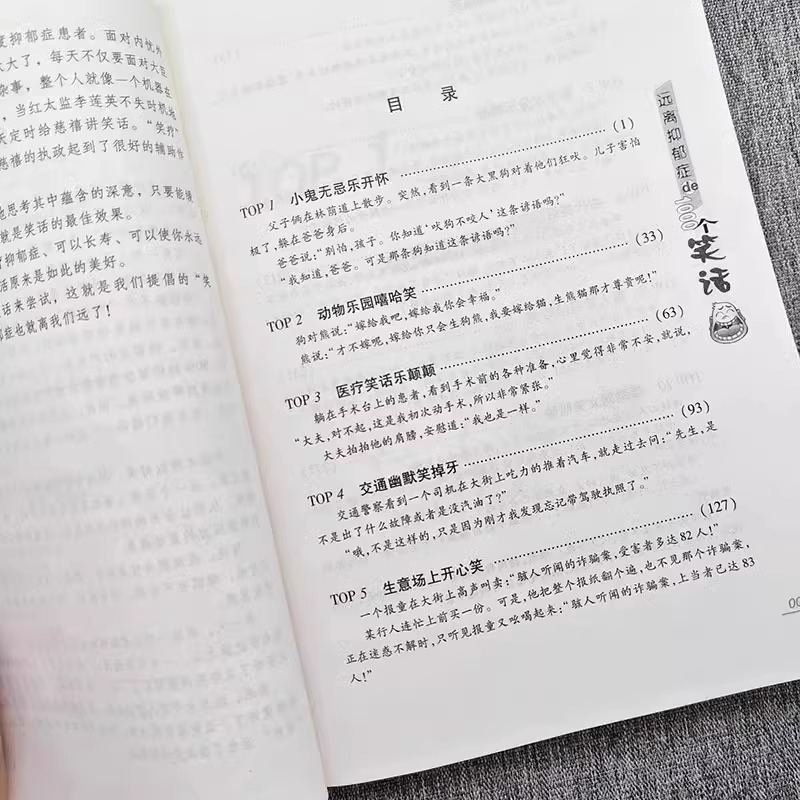 度抑郁症患者。面对内忧外
大了，每天不仅要面对大臣
杂事，整个人就像一个机器在
，当红太监李莲英不失时机地
天定时给慈禧讲笑话。“笑疗”
慈禧的执政起到了很好的辅助作
他思考其中蕴含的深意，只要能缓
就是笑话的最佳效果。
抑郁症、可以长寿、可以使你永远
活原来是如此的美好。
话来尝试，这就是我们提倡的“笑
郁症也就离我们远了！
目 录
TOP 1 小鬼无忌乐开怀 (1)
父子俩在林荫道上散步。突然，看到一条大黑狗对着他们狂吠。儿子害怕
极了，躲在爸爸身后。
爸爸说：“别怕，孩子。你知道‘吠狗不咬人’这条谚语吗？”
“我知道，爸爸。可是那条狗知道这条谚语吗？”
TOP 2 动物乐园嘻哈笑 (33)
狗对熊说：“嫁给我吧，嫁给我你会幸福。”
熊说：“才不嫁呢，嫁给你只会生狗熊，我要嫁给猫，生熊猫那才尊贵呢！”
TOP 3 医疗笑话乐颠颠 (63)
躺在手术台上的患者，看到手术前的各种准备，心里觉得非常不安，就说，
“大夫，对不起，这是我初次动手术，所以非常紧张。”
大夫拍拍他的肩膀，安慰道：“我也是一样。”
TOP 4 交通幽默笑掉牙 (93)
交通警察看到一个司机在大街上吃力的推着汽车，就走过去问：“先生，是
不是出了什么故障或者是没汽油了？”
“哦，不是这样的，只是因为刚才我发现忘记带驾驶执照了。”
TOP 5 生意场上开心笑 (127)
一个报童在大街上高声叫卖：“骇人听闻的诈骗案，受害者多达 82 人！”
某行人连忙上前买一份。可是，他把整个报纸翻个遍，也不见那个诈骗案，
正在迷惑不解时，只听见报童又吆喝起来：“骇人听闻的诈骗案，上当者已达 83
人！”
远离抑郁症de1000个笑话